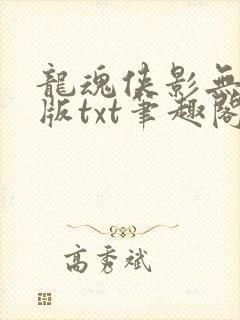 龍魂俠影無
版txt筆趣閣
高秀斌